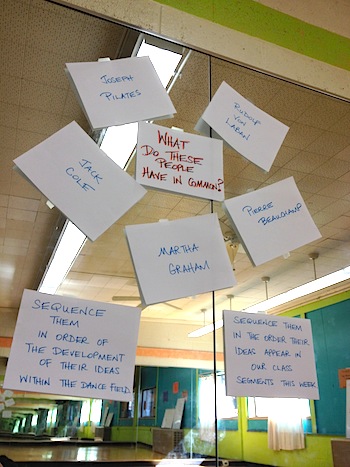 JOSEPH
PILATES
RUDOLF
VON
LABAN
WHAT
DO THESE
PEOPLE
HAVE IN COMMON?
JACK
COLE
PIERRE
BEAUCHAMP
MARTHA
GRAHAM
SEQUENCE
THEM
IN ORDER OF
THE DEVELOPMENT
OF THEIR IDEAS
WITHIN THE DANCE FIELD.
SEQUENCE THEM
IN THE ORDER THEIR
IDEAS APPEAR IN
OUR CLASS
SEGMENTS THIS WEEK